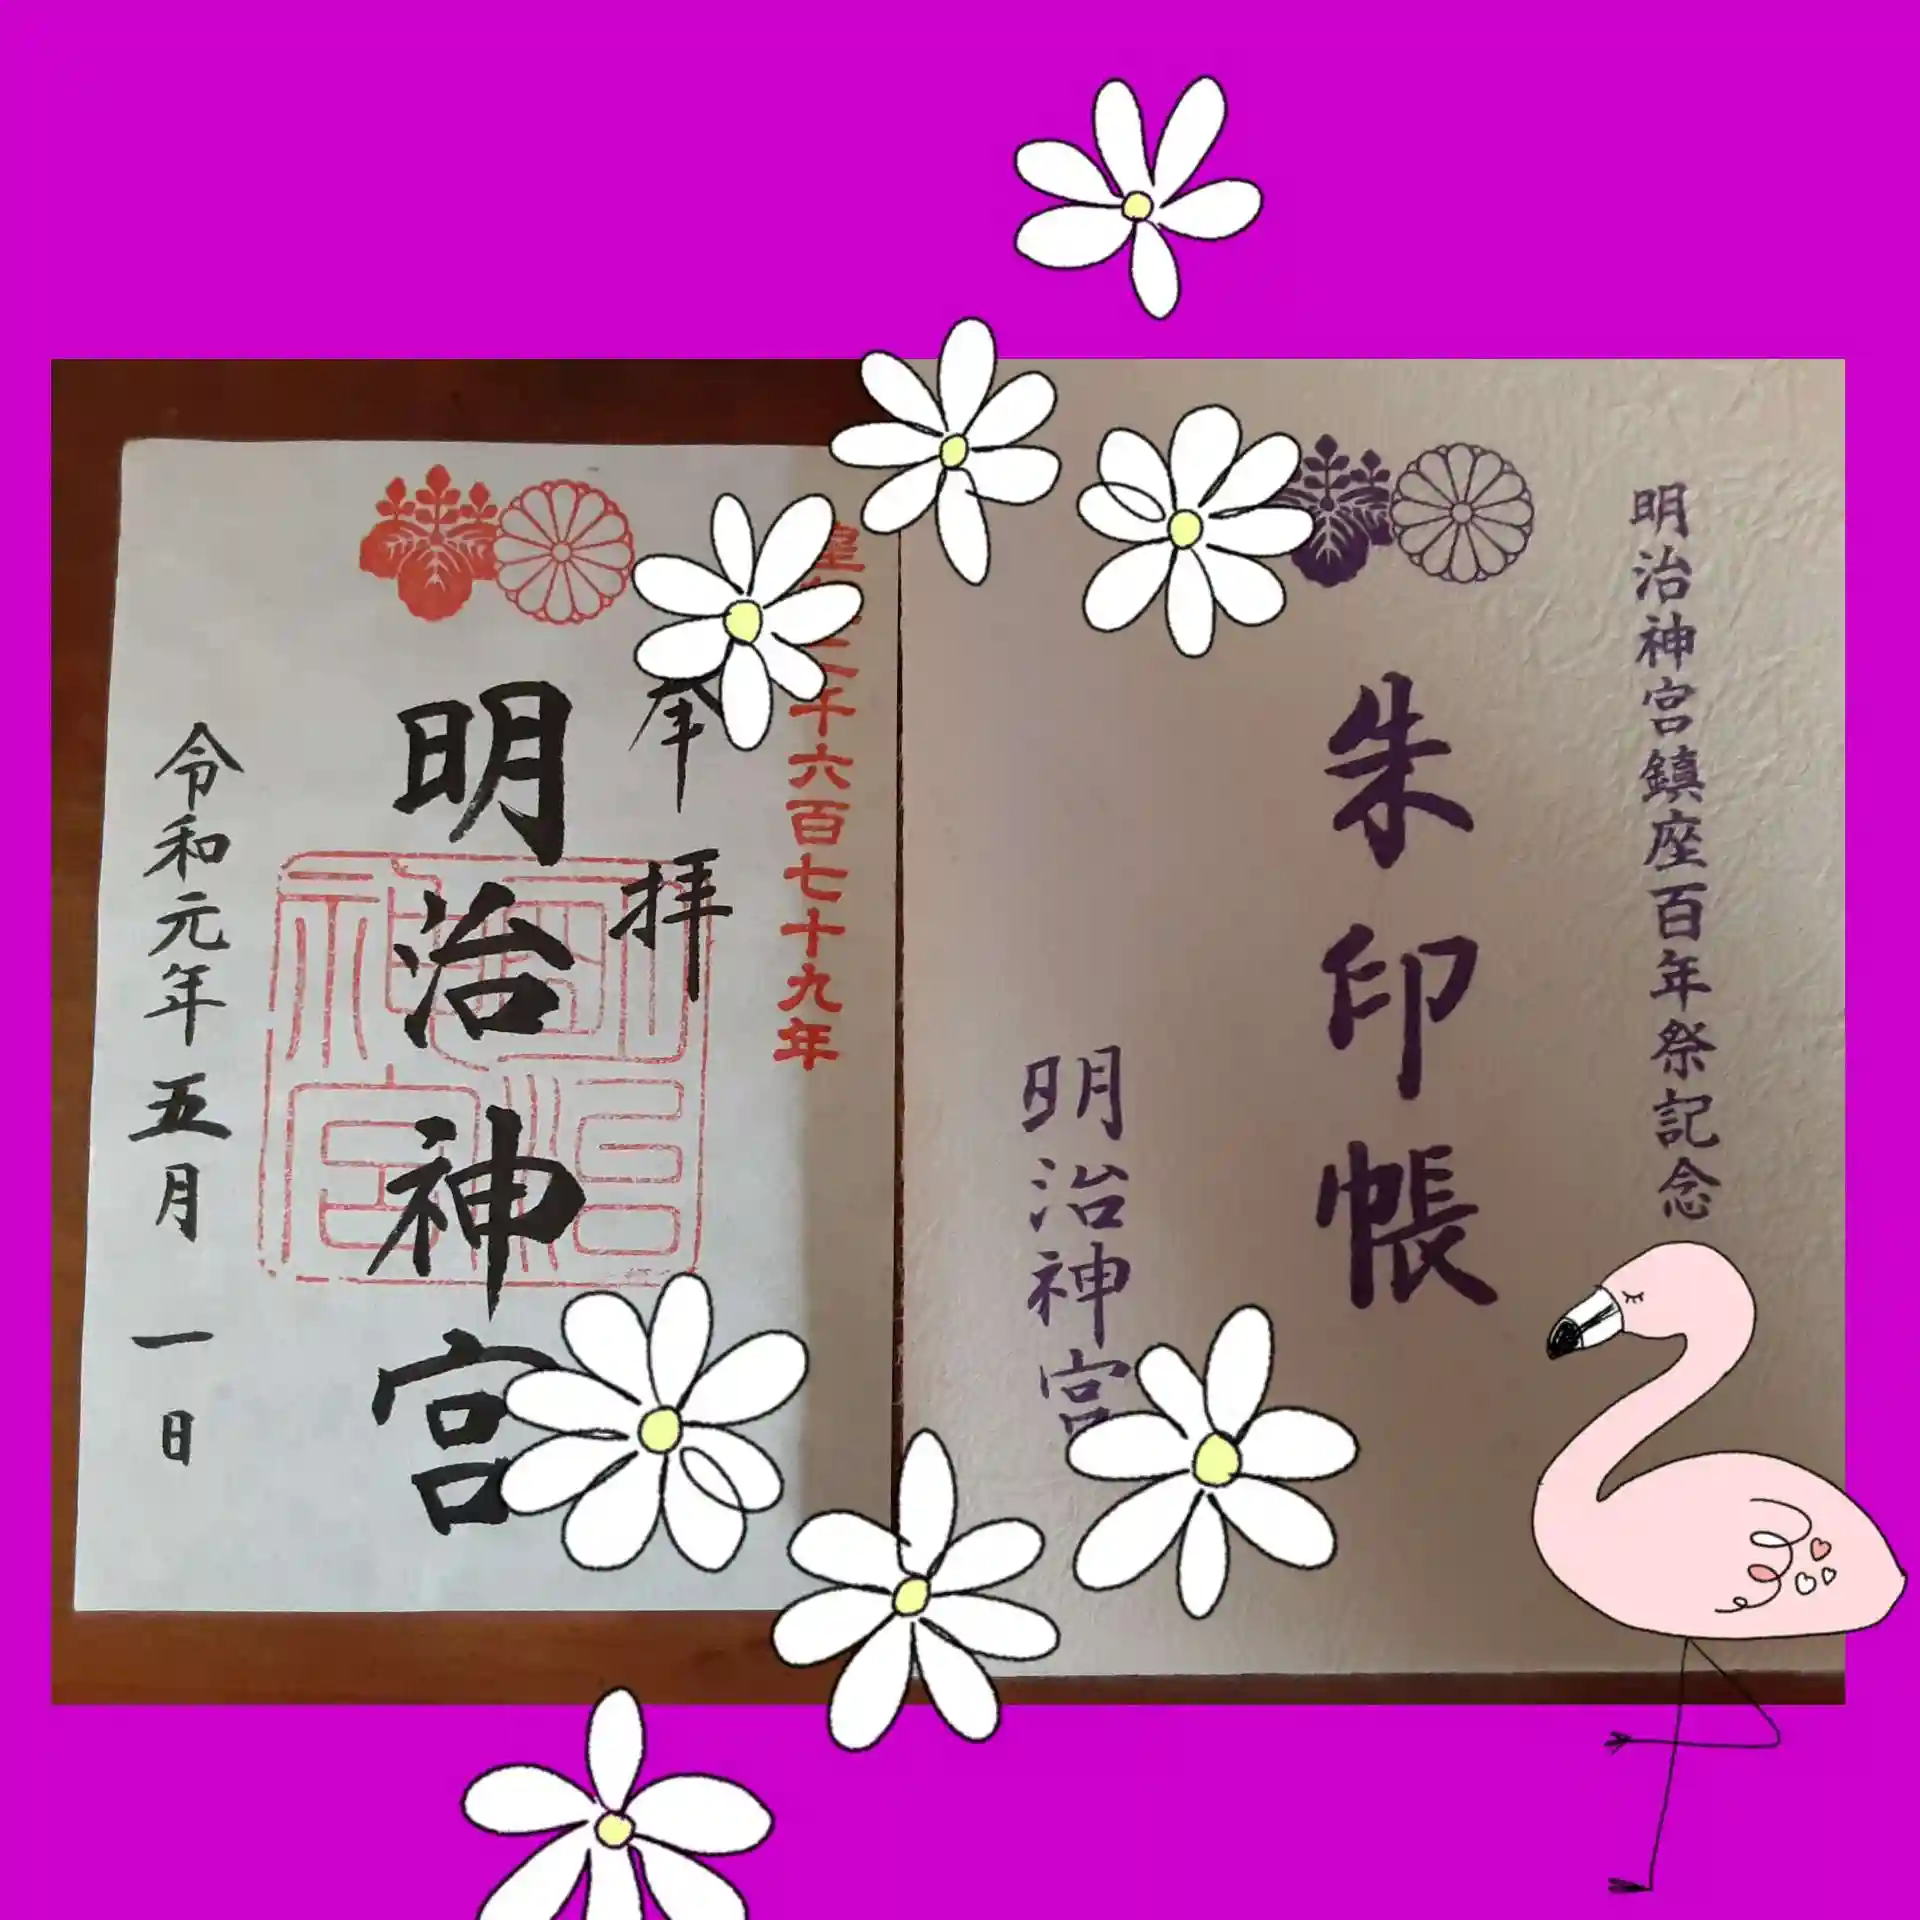 明治神宮鎮座百年祭記念
朱印帳
明治神宮
皇紀二千六百七十九年
奉拝
明治神宮
明治神宮
令和元年五月一日